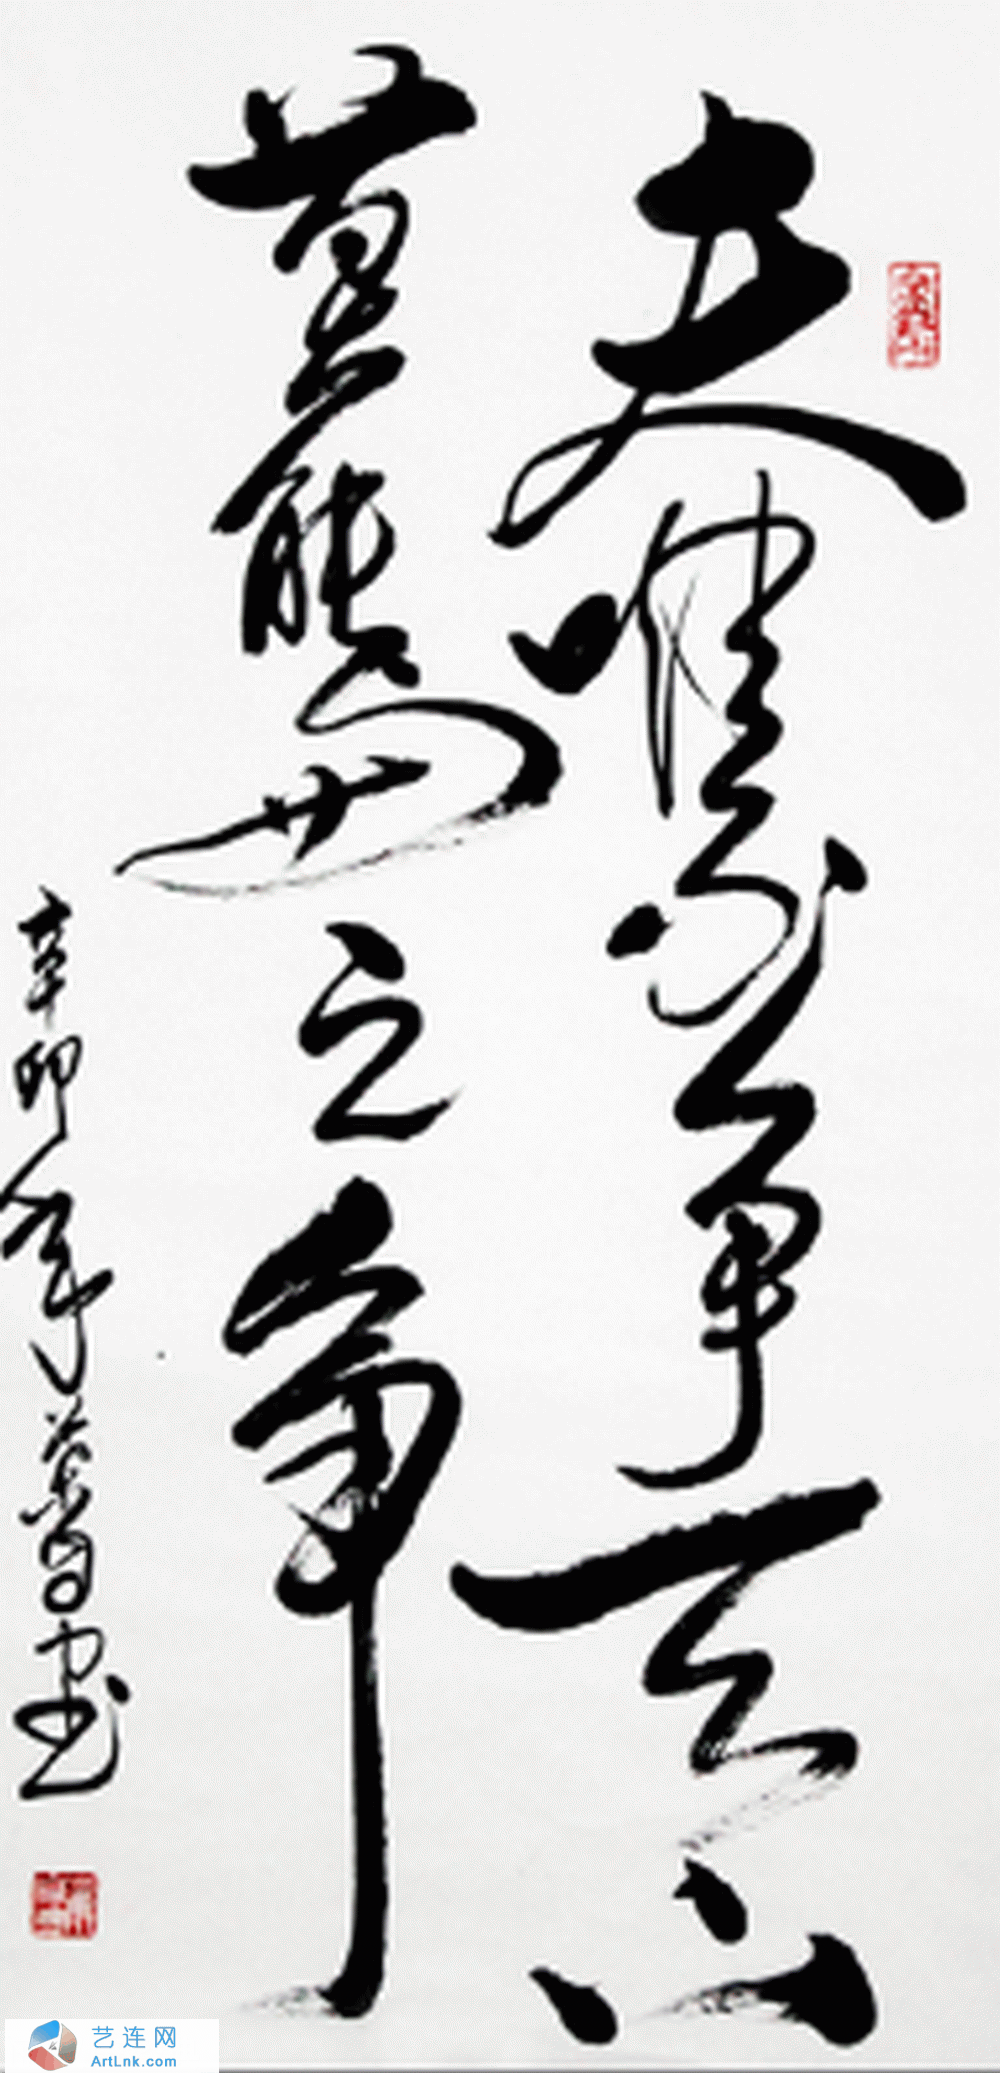 夫唯不争天下
莫能与之争
辛卯年
书
艺连网
ArtLnk.com